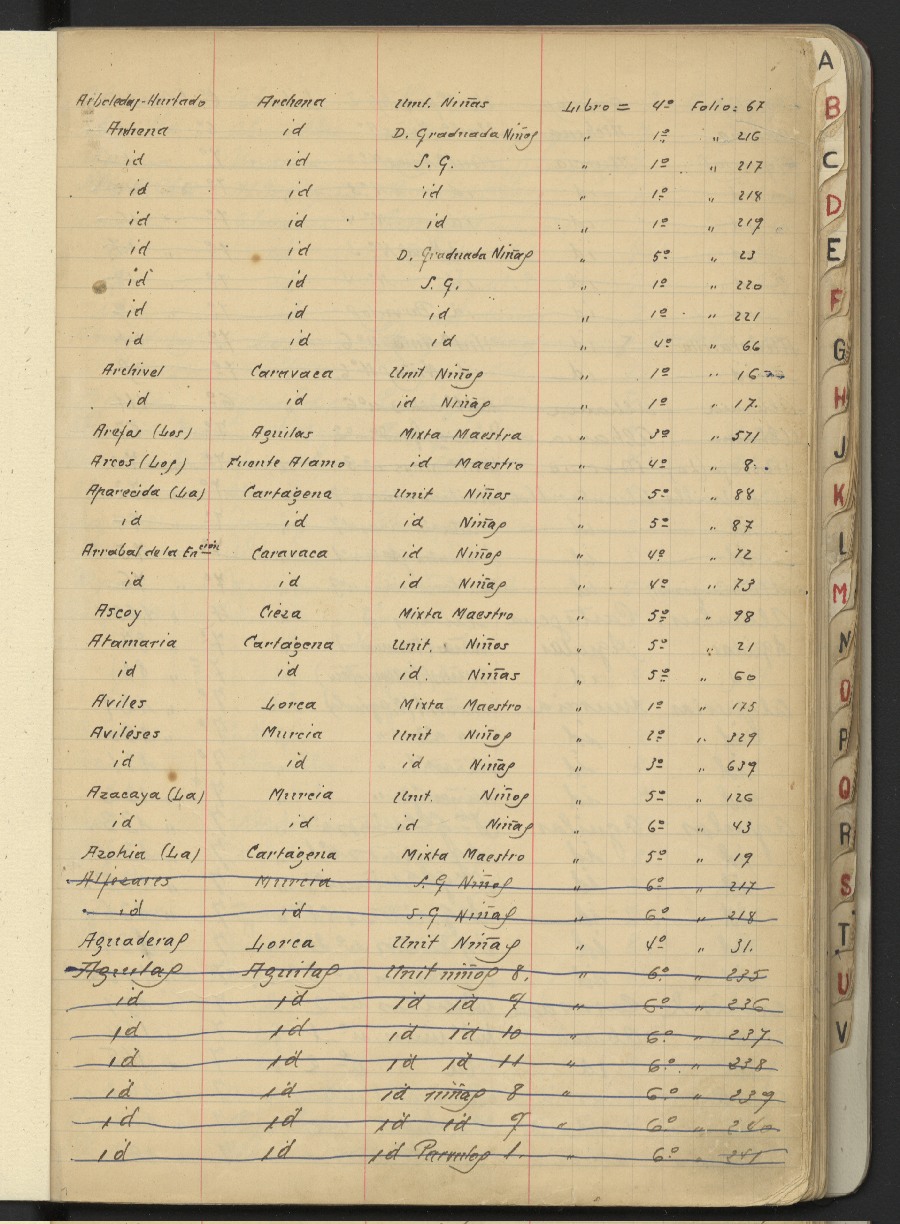 Arboledas-Hurtado Archena Unit. Niñas Libro = 4º Folio: 67
Archena id D. Graduada Niños " 1º " 216
id id S. G. " 1º " 217
id id id " 1º " 218
id id id " 1º " 219
id id D. Graduada Niñas " 5º " 23
id id S. G. " 1º " 220
id id id " 1º " 221
id id id " 4º " 66
Archivel Caravaca Unit Niños " 1º " 16
id id id Niñas " 1º " 17.
Arejos (Los) Aguilas Mixta Maestra " 3º " 571
Arcos (Los) Fuente Alamo id Maestro " 4º " 8.
Aparecida (La) Cartagena Unit Niños " 5º " 88
id id id Niñas " 5º " 87
Arrabal de la Ención Caravaca id Niños " 4º " 72
id id id Niñas " 4º " 73
Ascoy Cieza Mixta Maestro " 5º " 98
Atamaria Cartagena Unit. Niños " 5º " 21
id id id. Niñas " 5º " 60
Aviles Lorca Mixta Maestro " 1º " 175
Avileses Murcia Unit Niños " 2º " 329
id id id Niñas " 3º " 639
Azacaya (La) Murcia Unit. Niños " 5º " 126
id id id Niñas " 6º " 43
Azohia (La) Cartagena Mixta Maestro " 5º " 19
Aljezares Murcia S. G Niños " 6º " 217
id id S. G Niñas " 6º " 218
Aguaderas Lorca Unit Niñas " 4º " 31.
Aguilas Aguilas Unit niños 8. " 6º " 235
id id id id 9 " 6º " 236
id id id id 10 " 6º " 237
id id id id 11 " 6º " 238
id id id niñas 8 " 6º " 239
id id id id 9 " 6º " 240
id id id Parvulos 1. " 6º " 241
A
B
C
D
E
F
G
H
J
K
L
M
N
O
P
Q
R
S
T
U
V